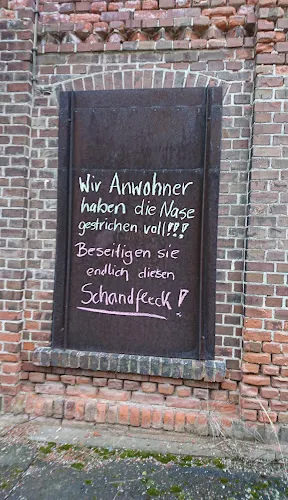 Wir Anwohner
haben die Nase
gestrichen voll!!!
Beseitigen sie
endlich diesen
Schandfleck!